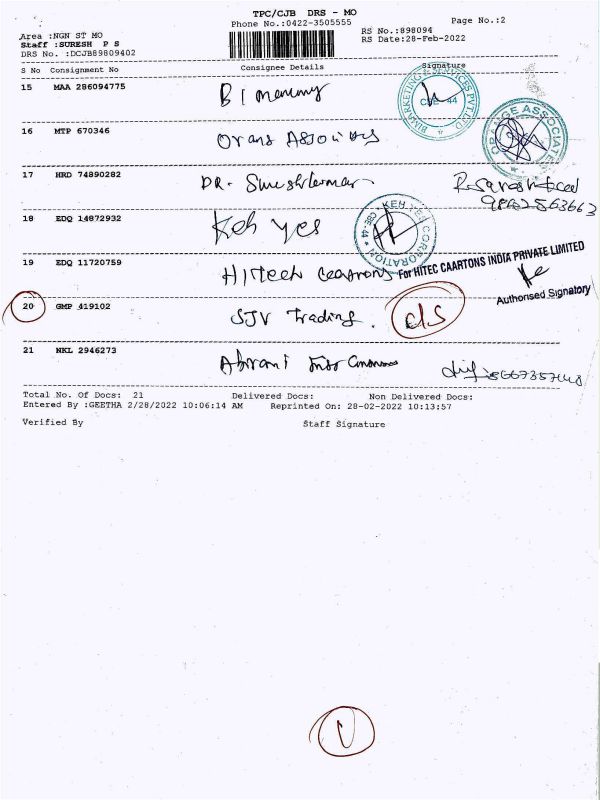 TPC/CJB DRS - MO
Phone No.:0422-3505555
Page No.:2
Area :NGN ST MO
RS No.:898094
Staff :SURESH P S
RS Date:28-Feb-2022
DRS No. :DCJB89809402
S No Consignment No Consignee Details Signature
15 MAA 286094775 B I
BIMARKETING & SERVICES PVT LTD
CBE-44
16 MTP 670346
ASSOCIATES
17 HRD 74890282 DR.
18 EDQ 14872932 Keh yes
KEH YES CORPORATION
CBE-44
19 EDQ 11720759 Hitech
For HITEC CAARTONS INDIA PRIVATE LIMITED
Authorised Signatory
20 GMP 419102 SJV Trading. c/s
21 NKL 2946273
Total No. Of Docs: 21 Delivered Docs: Non Delivered Docs:
Entered By :GEETHA 2/28/2022 10:06:14 AM Reprinted On: 28-02-2022 10:13:57
Verified By Staff Signature